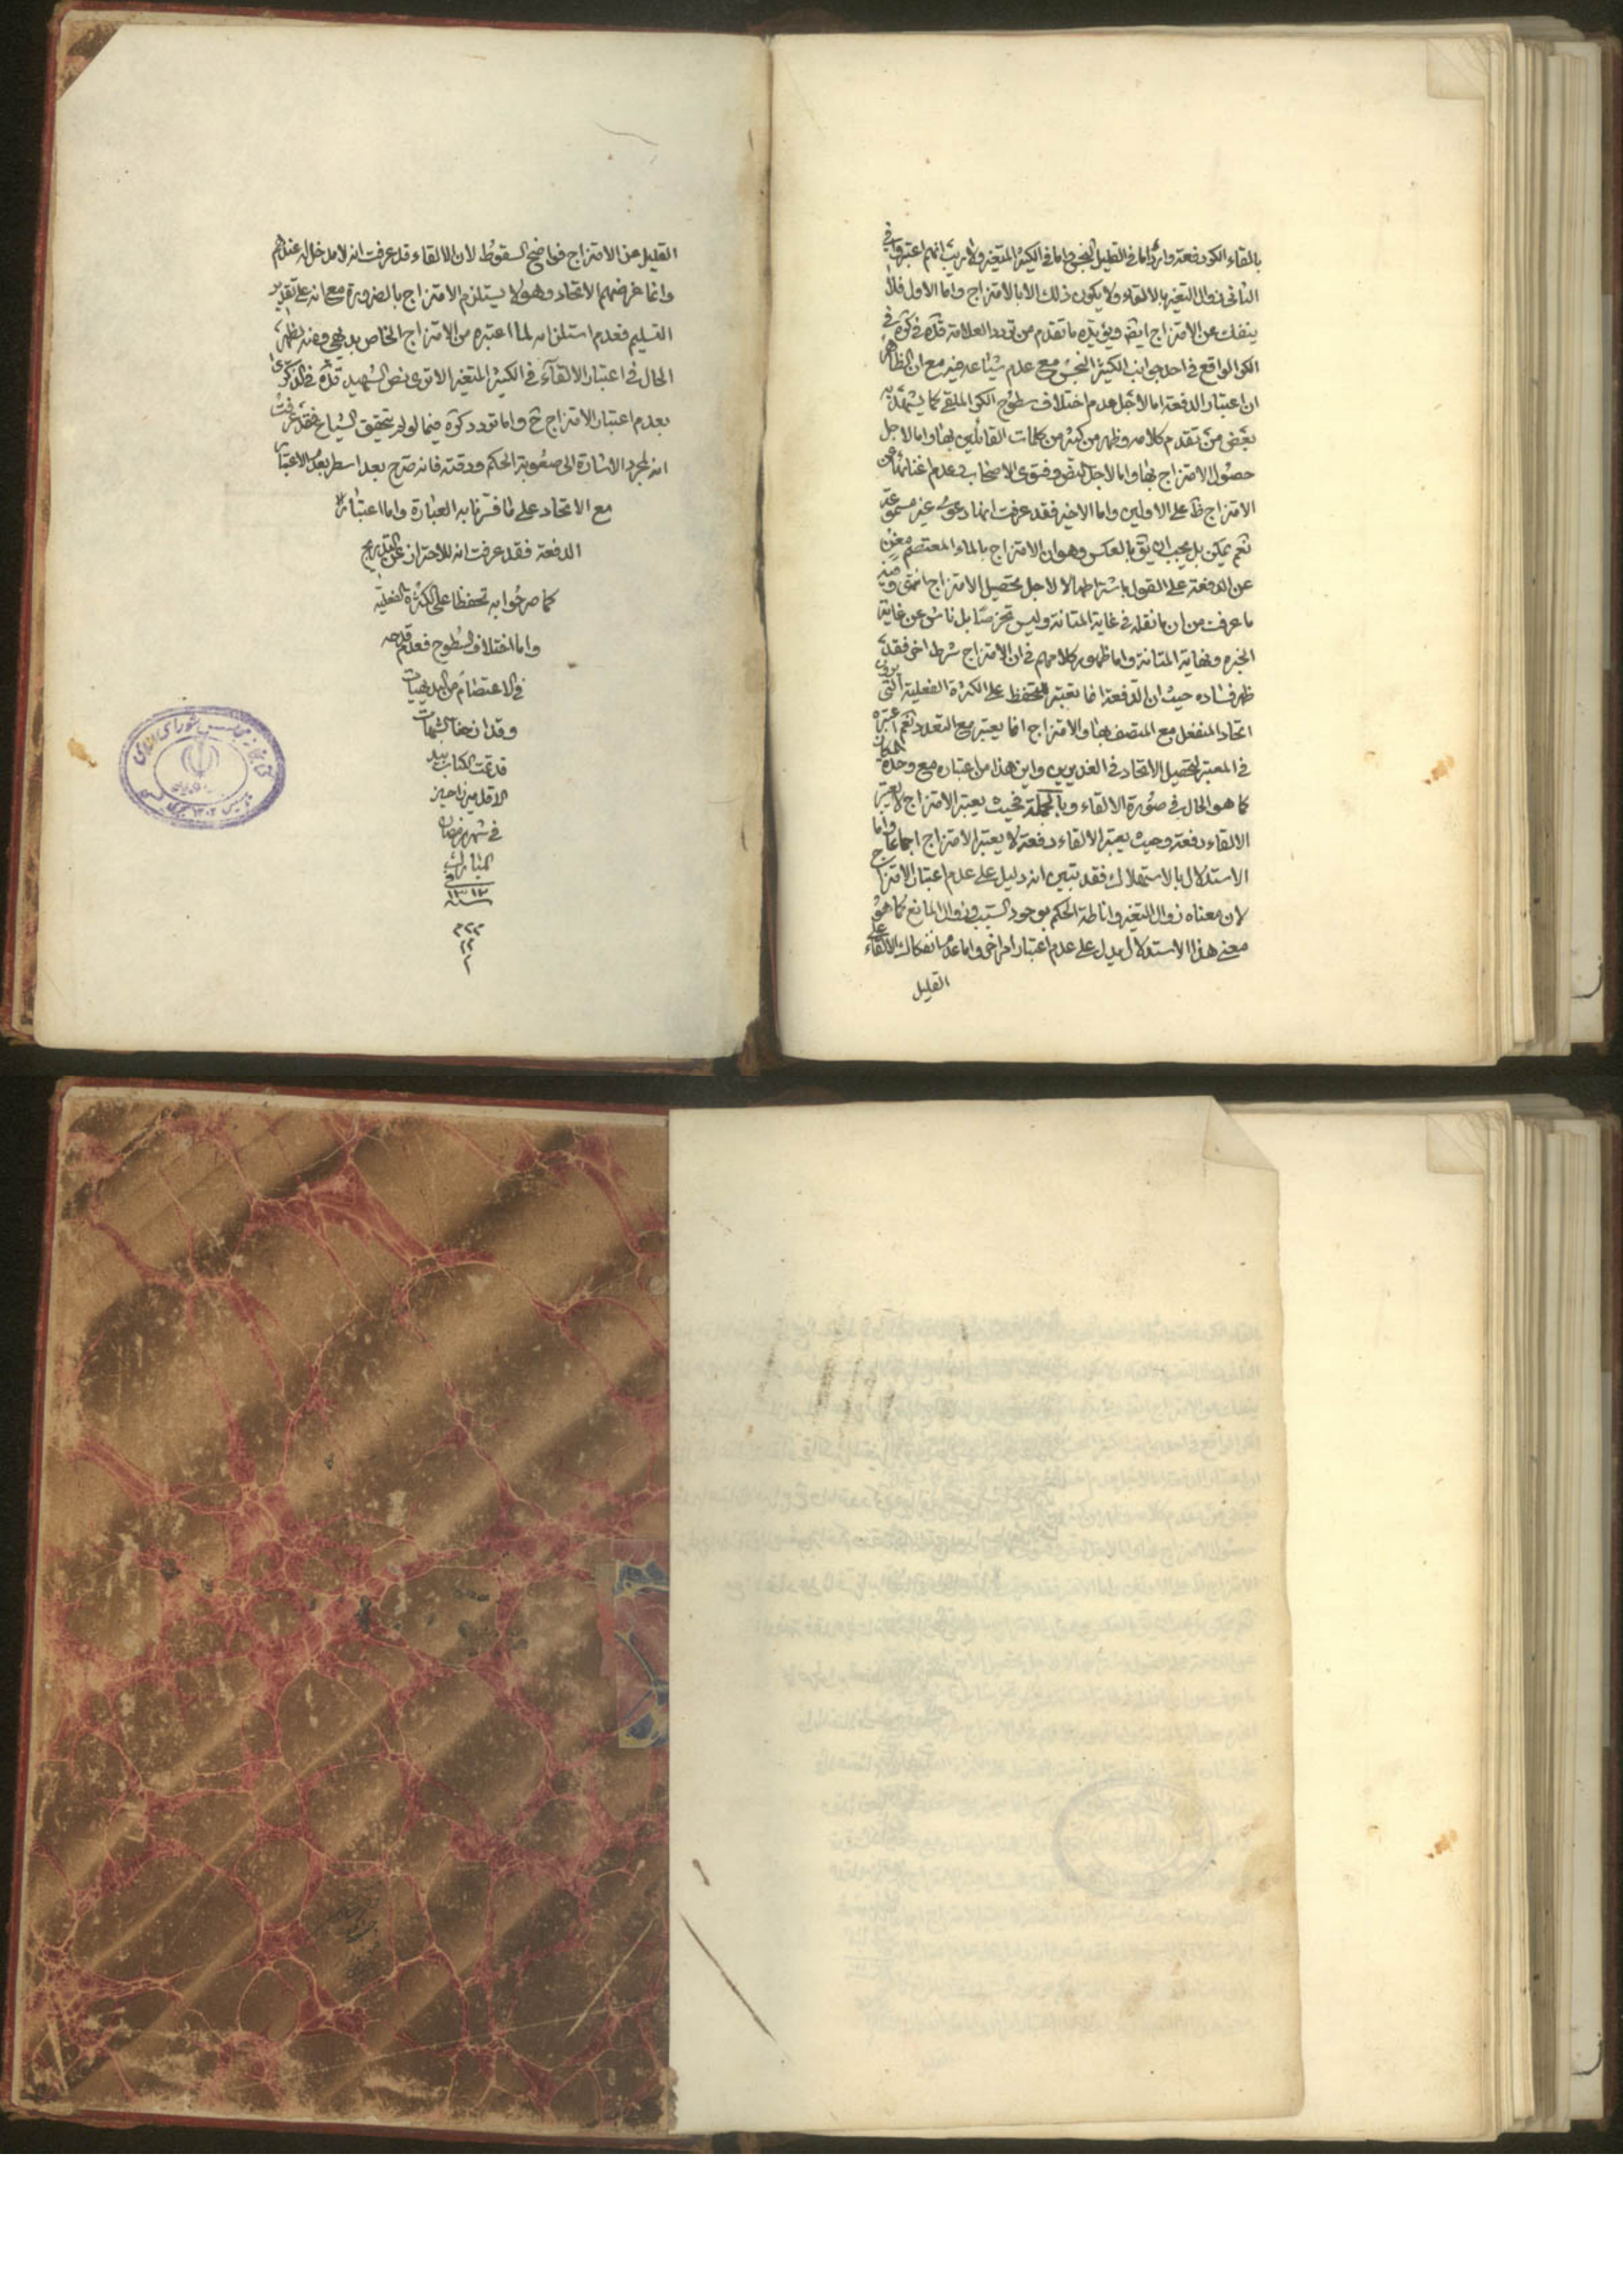 بالقاء الكر دفعة وارد اما فى القليل النجس واما فى الكثير المتغير ولا ريب انهم اعتبروا فى
الثانى زوال التغير بالالقاء ولا يكون ذلك الا بالامتزاج واما الاول فلا
ينفك عن الامتزاج ايضه ويؤيده ما تقدم من تردد العلامة قده فى كرة فى
الكر الواقع فى احد جوانب الكثير النجس مع عدم شياعه فيه مع ان الظاهر
ان اعتبار الدفعة اما لاجل عدم اختلاف سطوح الكر الملقى كما يشهد به
بعض من تقدم كلامه وظهر من كثير من كلمات القائلين بها واما لاجل
حصول الامتزاج بها واما لاجل النص وفتوى الاصحاب فى عدم
الامتزاج ظ على الاولين واما الاخير فقد عرفت انها دعوى غير مسموعة
نعم يمكن بل يجب ان يق بالعكس وهو ان الامتزاج بالماء المعتصم مغن
عن الدفعة على القول باشتراطها لا لاجل تحصيل الامتزاج انتهى وفيه
ما عرفت من ان ما نقله فى غاية المتانة وليس تخرصا بل ناش عن غاية
الخبره ونهاية المتانة واما ظهور كلامهم فى ان الامتزاج شرط اخر فقد
ظهر فساده حيث ان الدفعة انما تعتبر للتحفظ على الكثرة الفعلية التى يروى
اتحاد المنفعل مع المتصف بها والامتزاج انما يعتبر مع التعدد نعم اعتبره
فى المعتبر لتحصيل الاتحاد فى الغديرين واين هذا من اعتباره مع وحدة المكان
كما هو الحال فى صورة الالقاء وبالجملة فحيث يعتبر الامتزاج لا يعتبر
الالقاء دفعة وحيث يعتبر الالقاء دفعة لا يعتبر الامتزاج اجماعا واما
الاستدلال بالاستهلاك فقد تبين انه دليل على عدم اعتبار الامتزاج
لان معناه زوال التغير واناطة الحكم بوجود السبب وزوال المانع كما هو
معنى هذا الاستدلال يدل على عدم اعتبار امر اخر واما عدم انفكاك الالقاء على
القليل
القليل عن الامتزاج فواضح السقوط لان الالقاء قد عرفت انه لا مدخل له عندهم
وانما غرضهم الاتحاد وهو لا يستلزم الامتزاج بالضرورة مع انه على تقدير
التسليم فعدم استلزامه لما اعتبره من الامتزاج الخاص بديهى ومنه يظهر
الحال فى اعتبار الالقاء فى الكثير المتغير الا ترى نص الشهيد قده فى الذكرى
بعدم اعتبار الامتزاج ح واما تردد كرة فيما لو لم يتحقق الشياع فقد عرفت
انه لمجرد الاشارة الى صعوبة الحكم ودقته فانه صرح بعد اسطر بعدم الاعتبار
مع الاتحاد على ما فسرنا به العبارة واما اعتبار
الدفعة فقد عرفت انه للاحتراز عن التدريج
كما صرحوا به تحفظا على الكثرة الفعلية
واما اختلاف السطوح فعدم قدحه
فى الاعتصام من البديهيات
وقد ازحنا الشبهات
قد تمت الكتاب بيد
الاقل ميرزا
فى شهر رمضان
المبارك
فى
سنه ١٣١٣